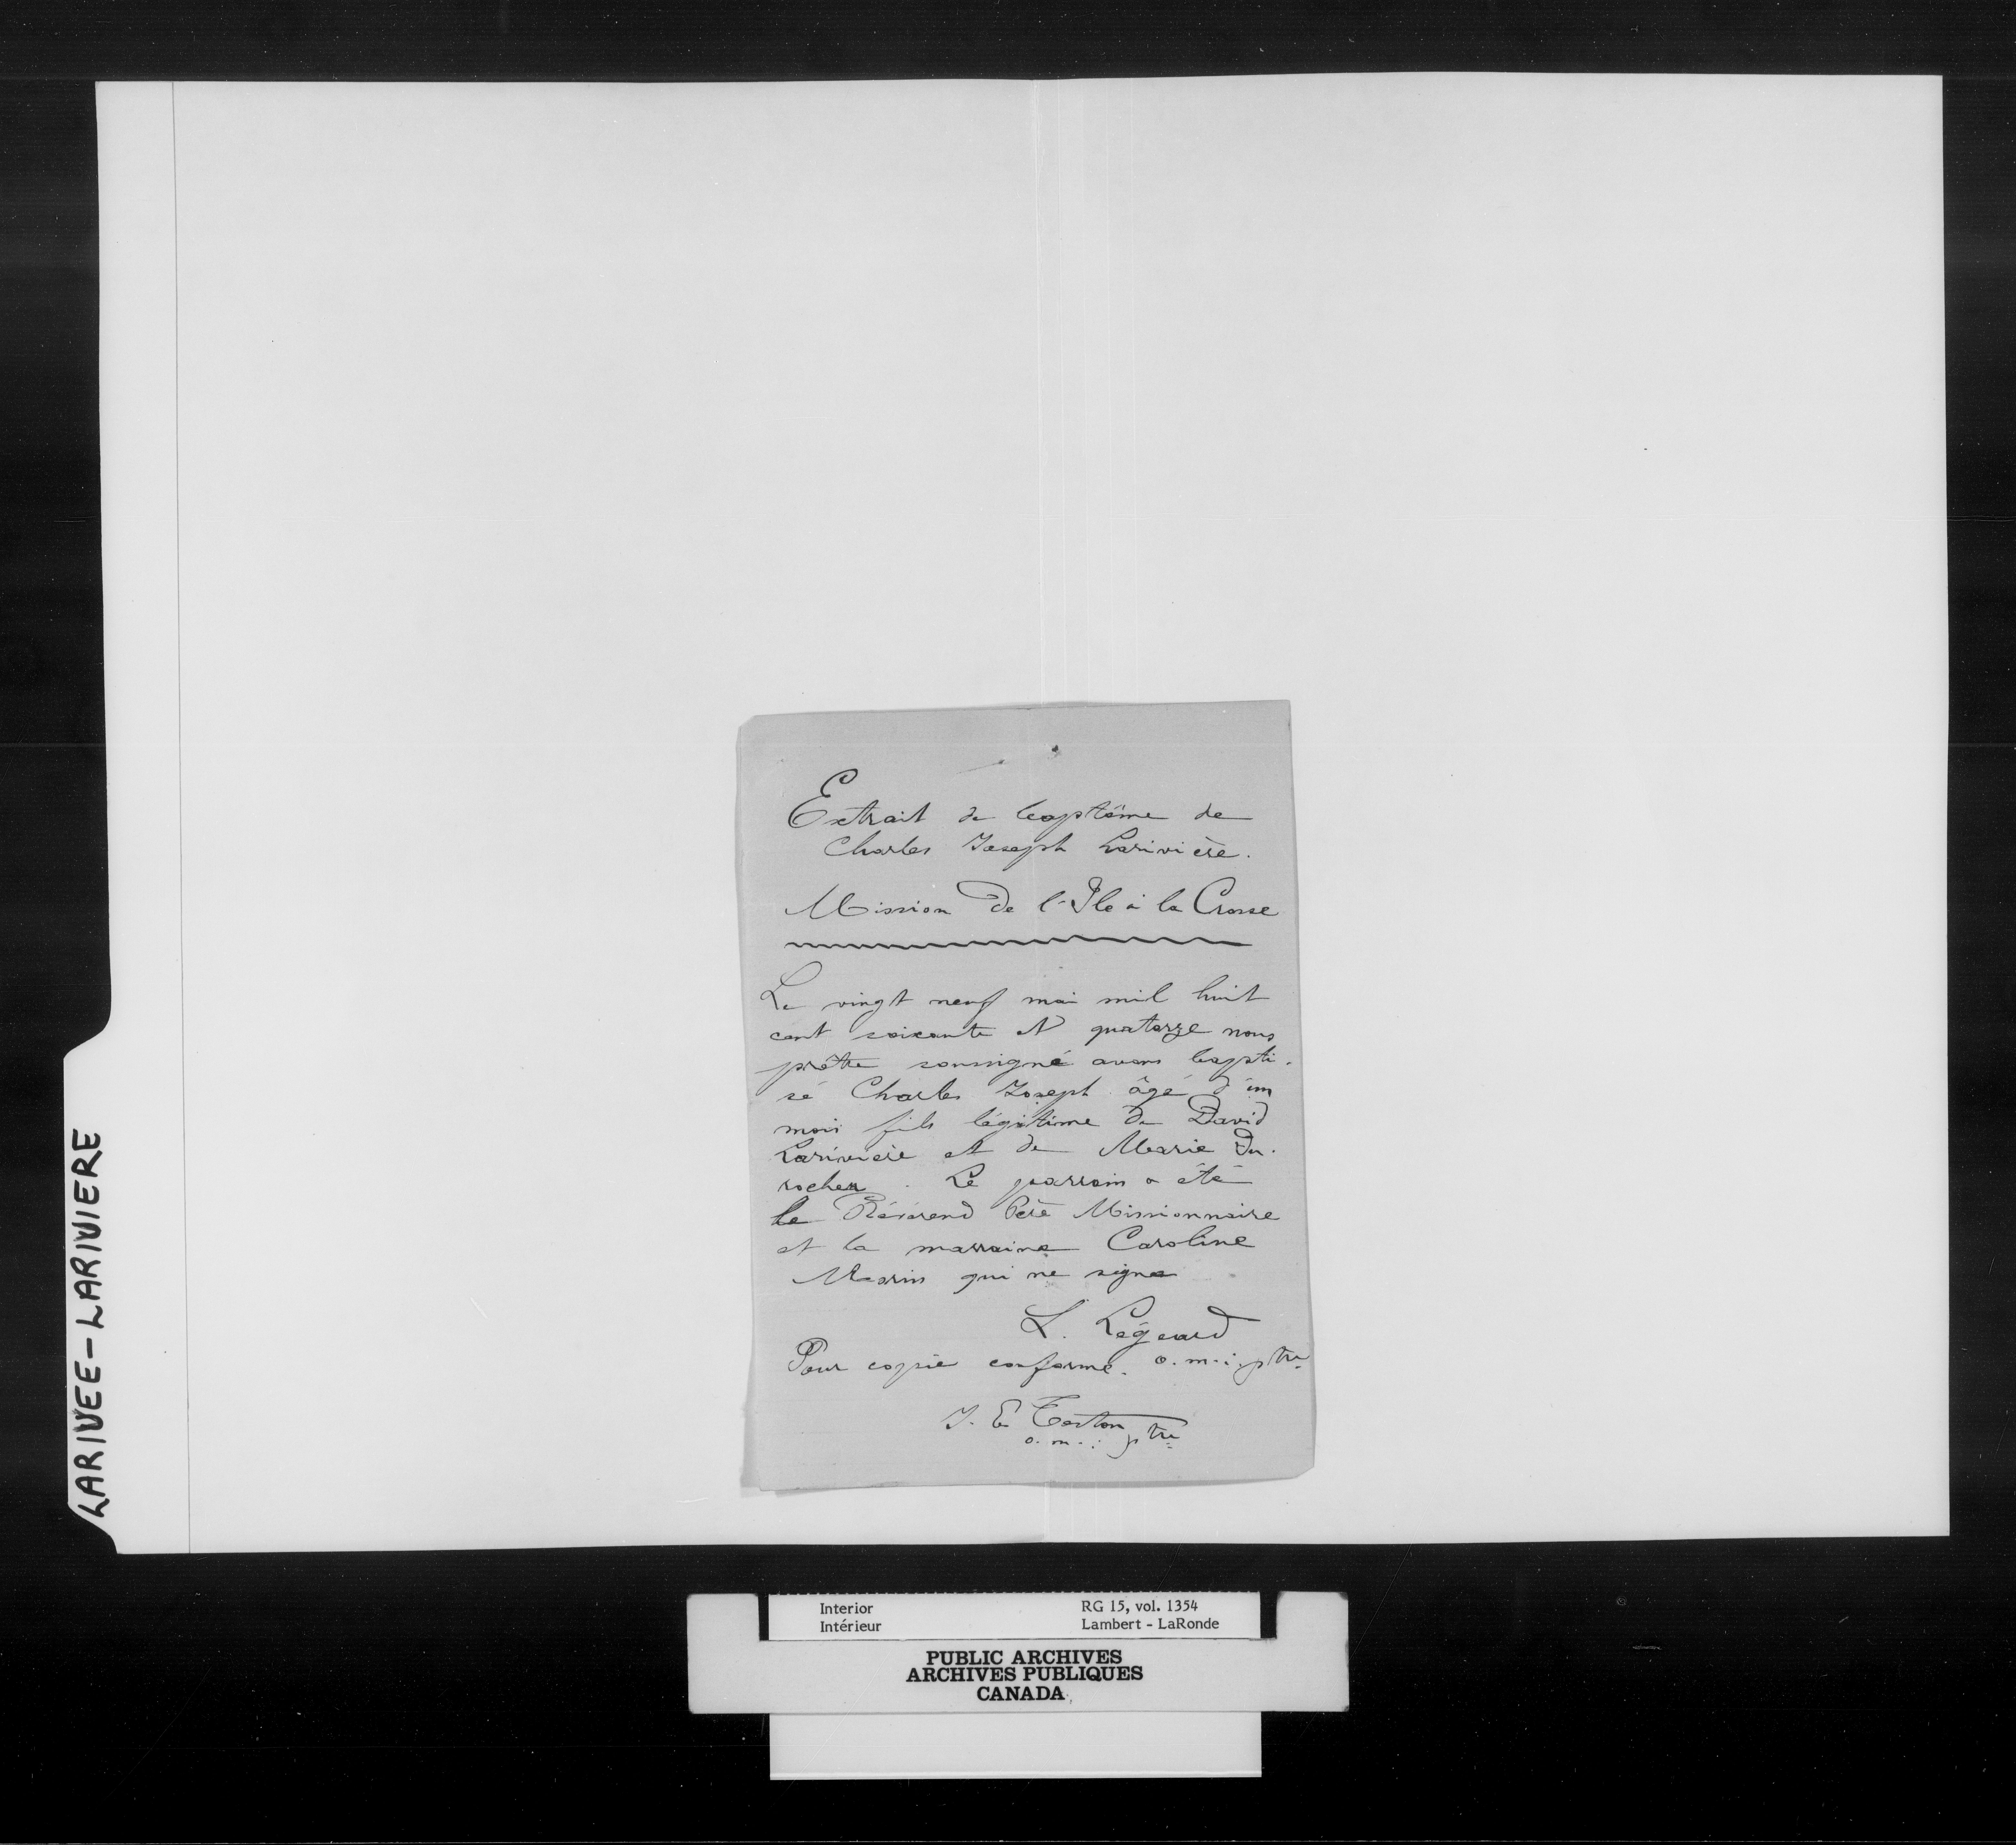 LARIVEE-LARIVIERE
Extrait de baptême de
Charles Joseph Larivière.
Mission de l'Ile à la Crosse
Le vingt neuf mai mil huit
cent soixante et quatorze nous
prêtre soussigné avons bapti-
sé Charles Joseph âgé d'un
mois fils légitime de David
Larivière et de Marie Du-
rocher. Le parrain a été
le Révérend Père Missionnaire
et la marraine Caroline
Morin qui ne signe
L. Légeard
Pour copie conforme. o.m.i. ptre
J. E. Teston
o.m.i ptre
Interior RG 15, vol. 1354
Intérieur Lambert - LaRonde
PUBLIC ARCHIVES
ARCHIVES PUBLIQUES
CANADA